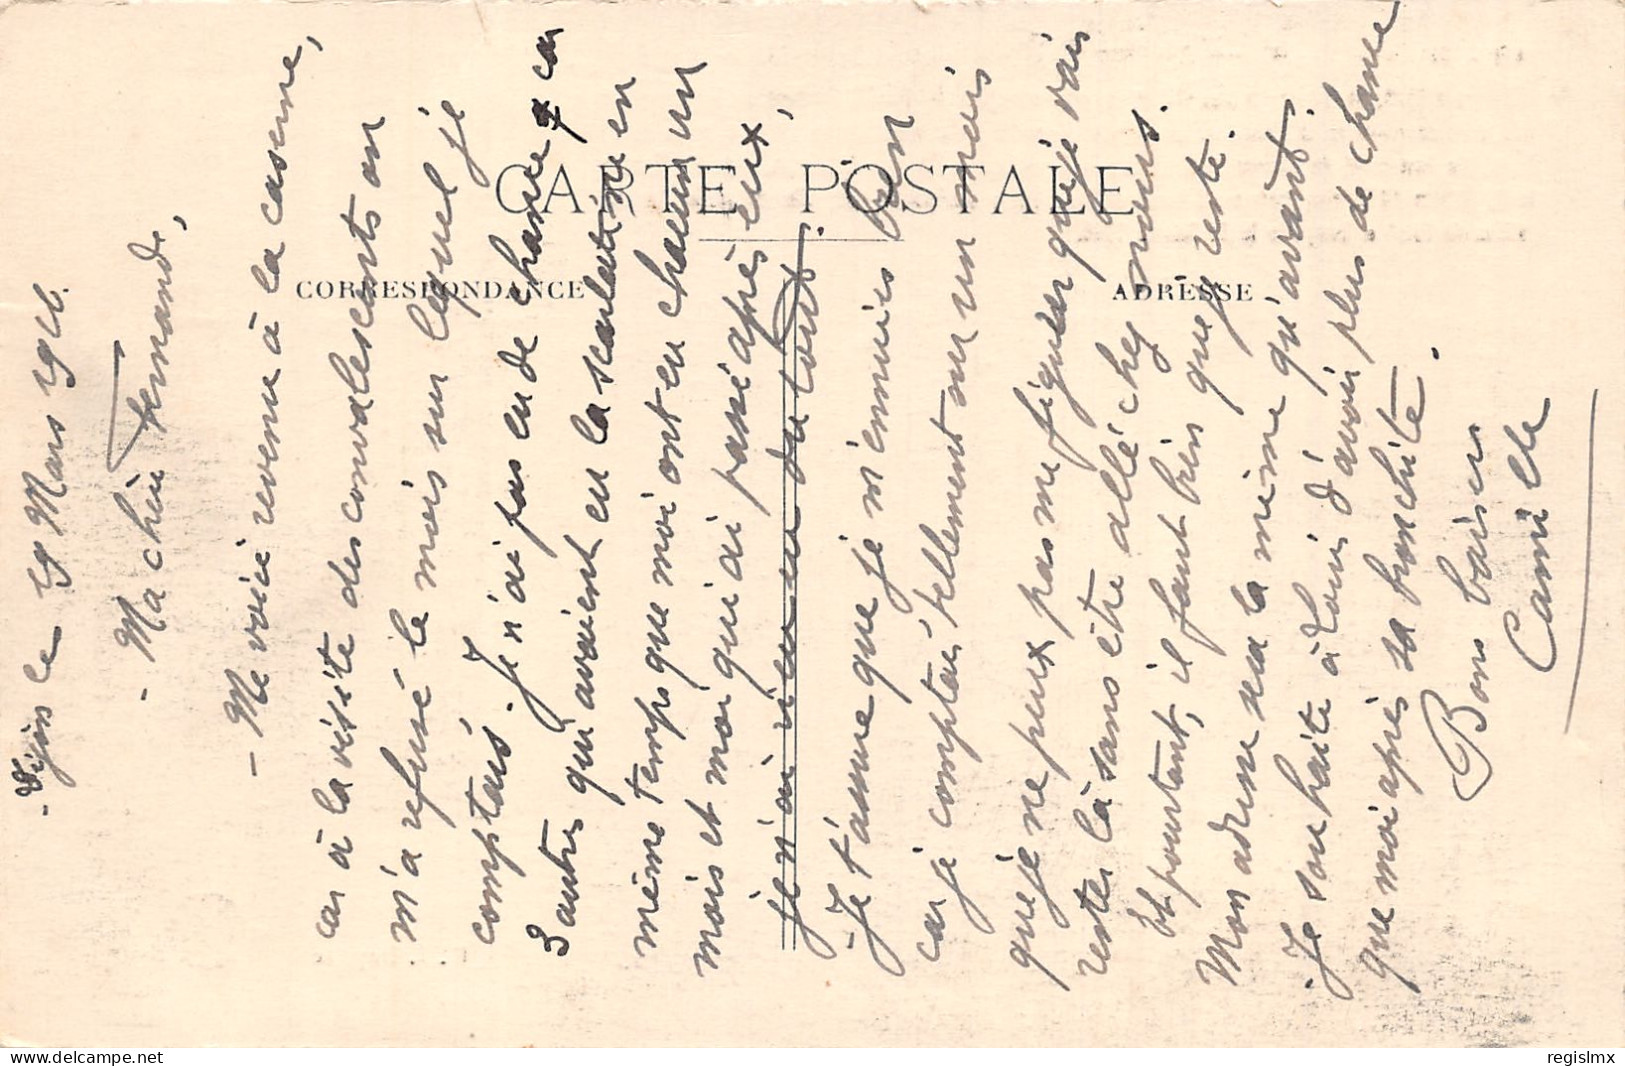 - Dijon le 19 Mars 1916.
- Ma chère Fernande,
- Me voici revenu à la caserne,
car à la visite des convalescents on
m'a refusé le mois sur lequel je
comptais. Je n'ai pas eu de chance car
3 autres qui avaient eu la scarlatine en
même temps que moi ont eu chacun un
mois et moi qui ai passé après eux,
je n'ai rien eu du tout.
- Je t'assure que je m'ennuies bien
car je comptais tellement sur un mois
que je ne peux pas me figurer que je vais
rester là sans être allé chez nous.
Et pourtant, il faut bien que j'y reste.
Mon adresse sera la même qu'avant.
- Je souhaite à Louis d'avoir plus de chance
que moi après sa bronchite.
Bons baisers
Camille
CARTE POSTALE
CORRESPONDANCE
ADRESSE
regislmx